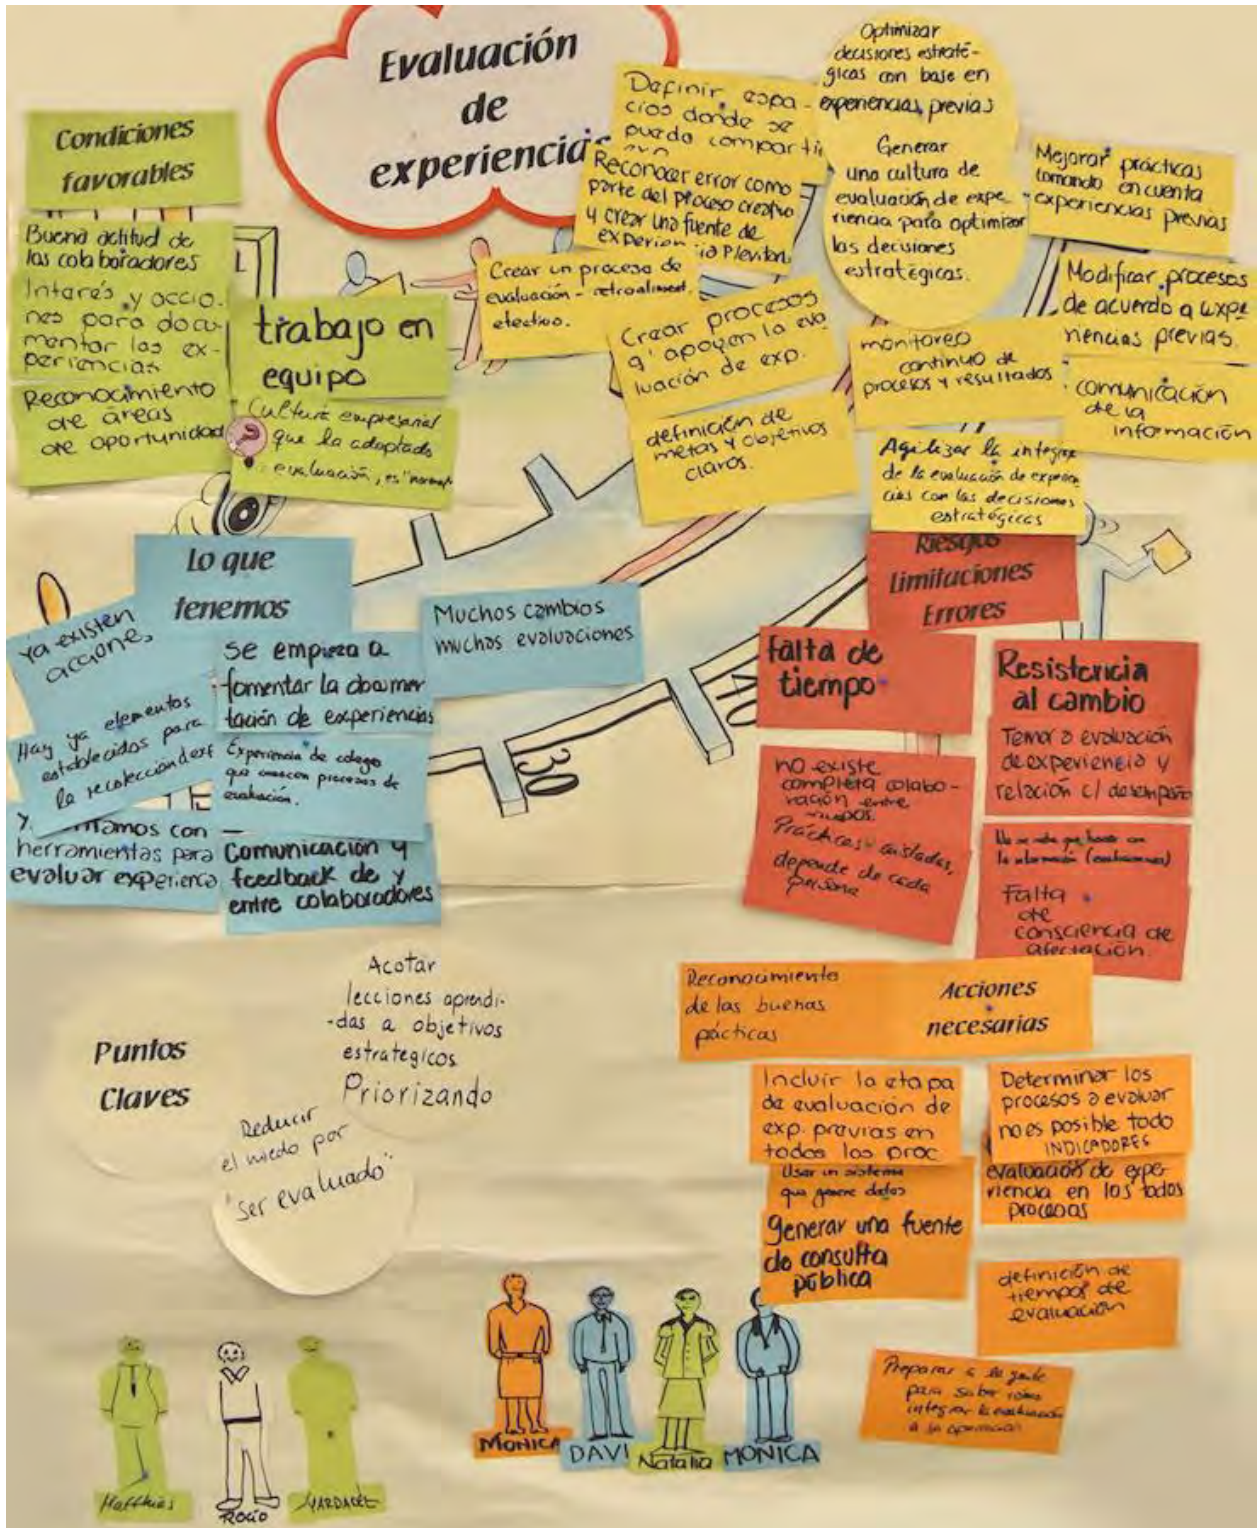 Evaluación
de
experiencia
Condiciones
favorables
Buena actitud de
las colaboradores
Interés y accio-
nes para docu-
mentar las ex-
periencias
Reconocimiento
de áreas
de oportunidad
trabajo en
equipo
Cultura empresarial
que ha adoptado
evaluación, es "normal"
Definir espa-
cios donde se
pueda compartir
Reconocer error como
parte del proceso creativo
y crear una fuente de
experiencia
Crear un proceso de
evaluación - retroaliment.
efectivo.
Crear procesos
q' apoyen la eva
luación de exp.
definición de
metas y objetivos
claros.
Optimizar
decisiones estraté-
gicas con base en
experiencias previas
Generar
una cultura de
evaluación de expe-
riencia para optimizar
las decisiones
estratégicas.
Mejorar prácticas
tomando en cuenta
experiencias previas
Modificar procesos
de acuerdo a expe
riencias previas.
monitoreo
continuo de
procesos y resultados
comunicación
de la
información
Agilizar la integra
de la evaluación de experien
cias con las decisiones
estratégicas
Lo que
tenemos
Ya existen
acciones
Hay ya elementos
establecidos para
la recolección d exp
Y
tamos con
herramientas para
evaluar experienca
se empieza a
fomentar la documen
tación de experiencias
Experiencia de colegas
que conocen procesos de
evaluación.
Comunicación y
feedback de y
entre colaboradores
Muchos cambios
muchas evaluaciones
30
40
Riesgos
Limitaciones
Errores
falta de
tiempo
no existe
completa colabo-
ración entre
Prácticas aisladas,
depende de cada
persona
Resistencia
al cambio
Temor a evaluación
de experiencia y
relación c/ desempeño
No se sabe que hacer con
la información (evaluaciones)
Falta
de
consciencia de
afectación.
Puntos
Claves
Acotar
lecciones aprendi-
-das a objetivos
estrategicos
Priorizando
Reducir
el miedo por
"ser evaluado"
Reconocimiento
de las buenas
prácticas
Acciones
necesarias
Incluir la etapa
de evaluación de
exp. previas en
todos los proc
Usar un sistema
que genere datos
generar una fuente
de consulta
pública
Determinar los
procesos a evaluar
no es posible todo
INDICADORES
evaluación de expe-
riencia en los todos
procesos
definición de
tiempos de
evaluación
Preparar a la gente
para saber como
integrar la evaluación
a la operación
MONICA
DAVI
Natalia
MONICA
Matthias
ROCÍO